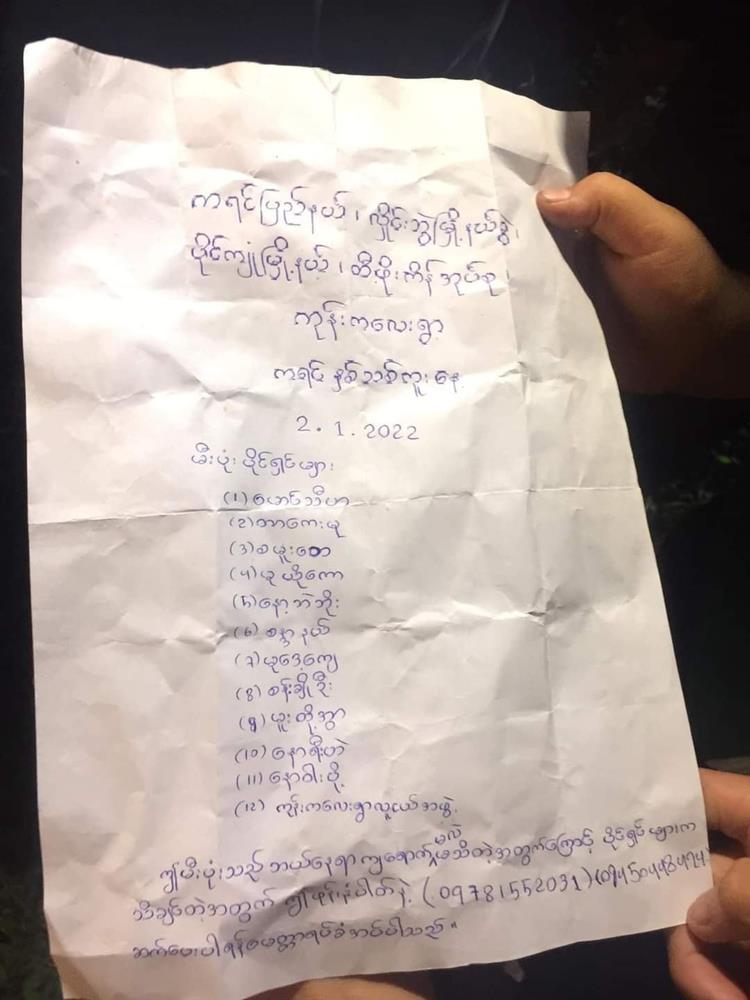 ကရင်ပြည်နယ်၊ လှိုင်းဘွဲမြို့နယ်ခွဲ၊
ပိုင်ကျုံမြို့နယ်၊ တီဖိုးကိန်အုပ်စု၊
ကုန်းကလေးရွာ
ကရင် နှစ်သစ်ကူးနေ့
2.1.2022
မီးပုံးပိုင်ရှင်များ
(1) စောင်သီဟ
(2) တာကေးမူ
(3)
(4)
(5) နော့ဘဲဘိုး
(6) စန္ဒာနယ်
(7) မူဒေ့ကျေ
(8) စန်းချိုဦး
(9) ဖူးတိုအွာ
(10) နောရီးဟဲ
(11) နောဝါးပို့
(12) ကုန်းကလေးရွာလူငယ်အဖွဲ့
ဤမီးပုံးသည် ဘယ်နေရာကျရောက်မလဲမသိတဲ့အတွက်ကြောင့် ပိုင်ရှင်များက
သိချင်တဲ့အတွက် ဤဖုန်းနံပါတ်နဲ့ (09781552031)
ဆက်ပေးပါရန်မေတ္တာရပ်ခံအပ်ပါသည်။